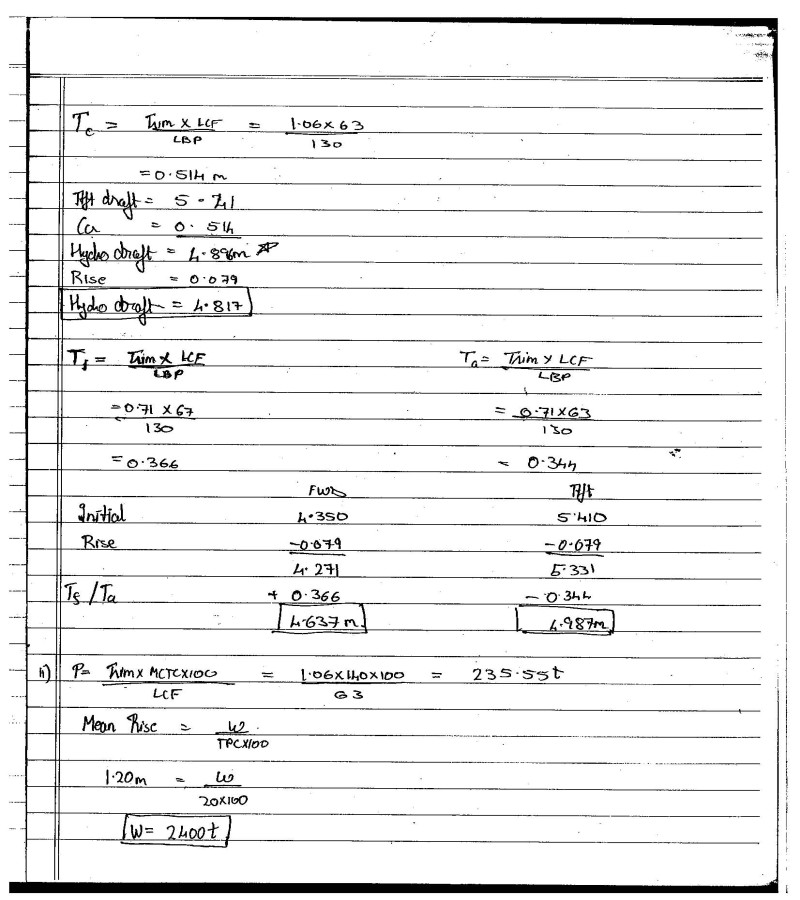 Tc = Trim x LCF / LBP = 1.06 x 63 / 130
= 0.514 m
Aft draft = 5.41
Cr = 0.514
Hydro draft = 4.896m
Rise = 0.079
Hydro draft = 4.817
Tf = Trim x LCF / LBP Ta = Trim x LCF / LBP
= 0.71 x 67 / 130 = 0.71 x 63 / 130
= 0.366 = 0.344
FWD Aft
Initial 4.350 5.410
Rise -0.079 -0.079
4.271 5.331
Tf / Ta + 0.366 - 0.344
4.637 m 4.987m
h) P = Trim x MCTC x 100 / LCF = 1.06 x 140 x 100 / 63 = 235.55t
Mean Rise = W / TPC x 100
1.20m = W / 20 x 100
W = 2400t